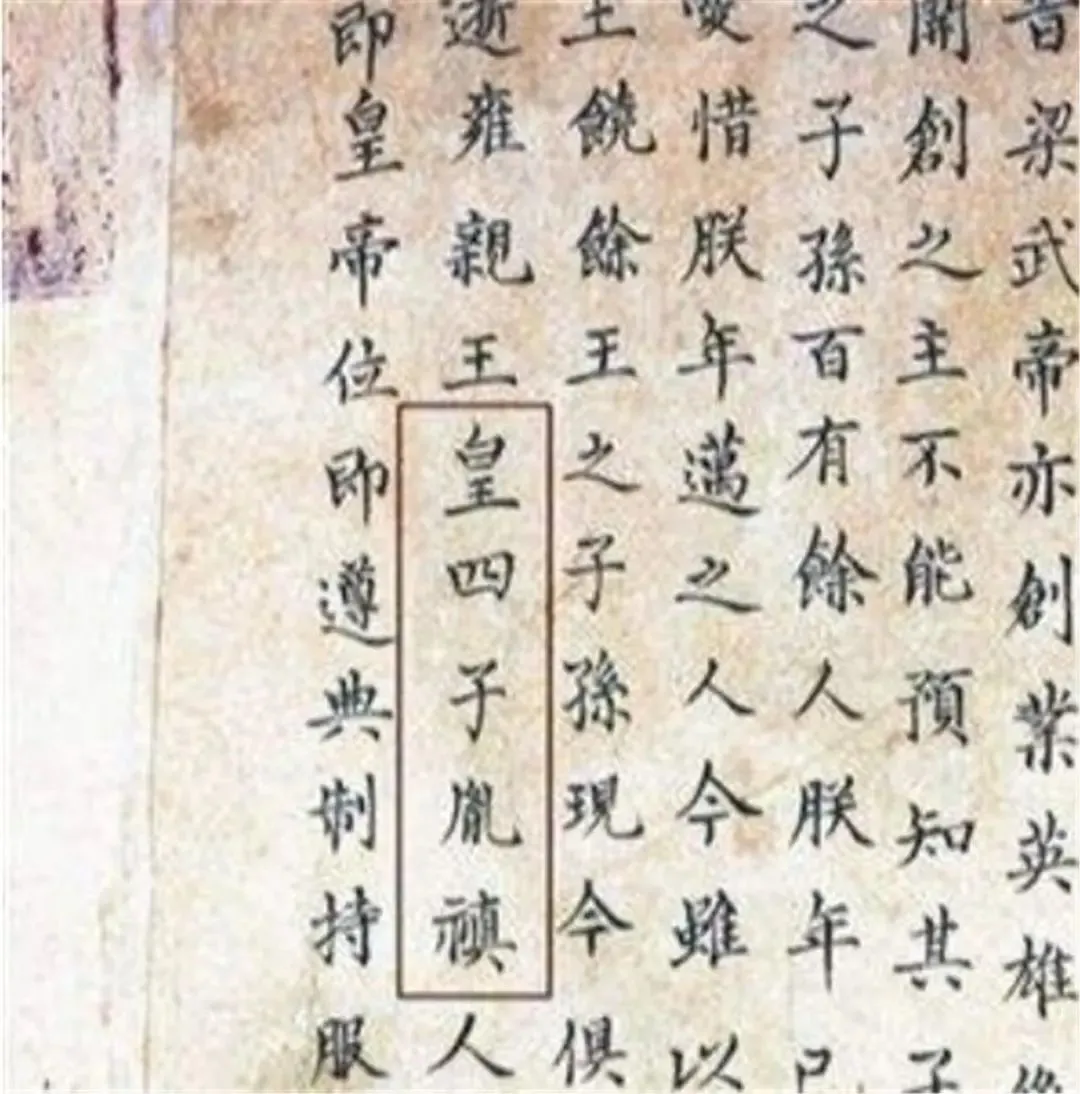 昔梁武帝亦創業英雄後
開創之主不能預知其子
之子孫百有餘人朕年已
愛惜朕年邁之人今雖以
王饒餘王之子孫現今俱
逝雍親王皇四子胤禛人
即皇帝位即遵典制持服